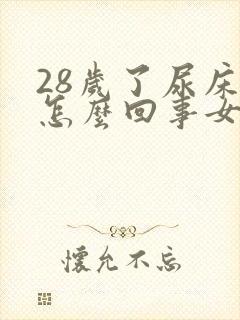 28歲了尿床
怎麼回事女
懷允不忘